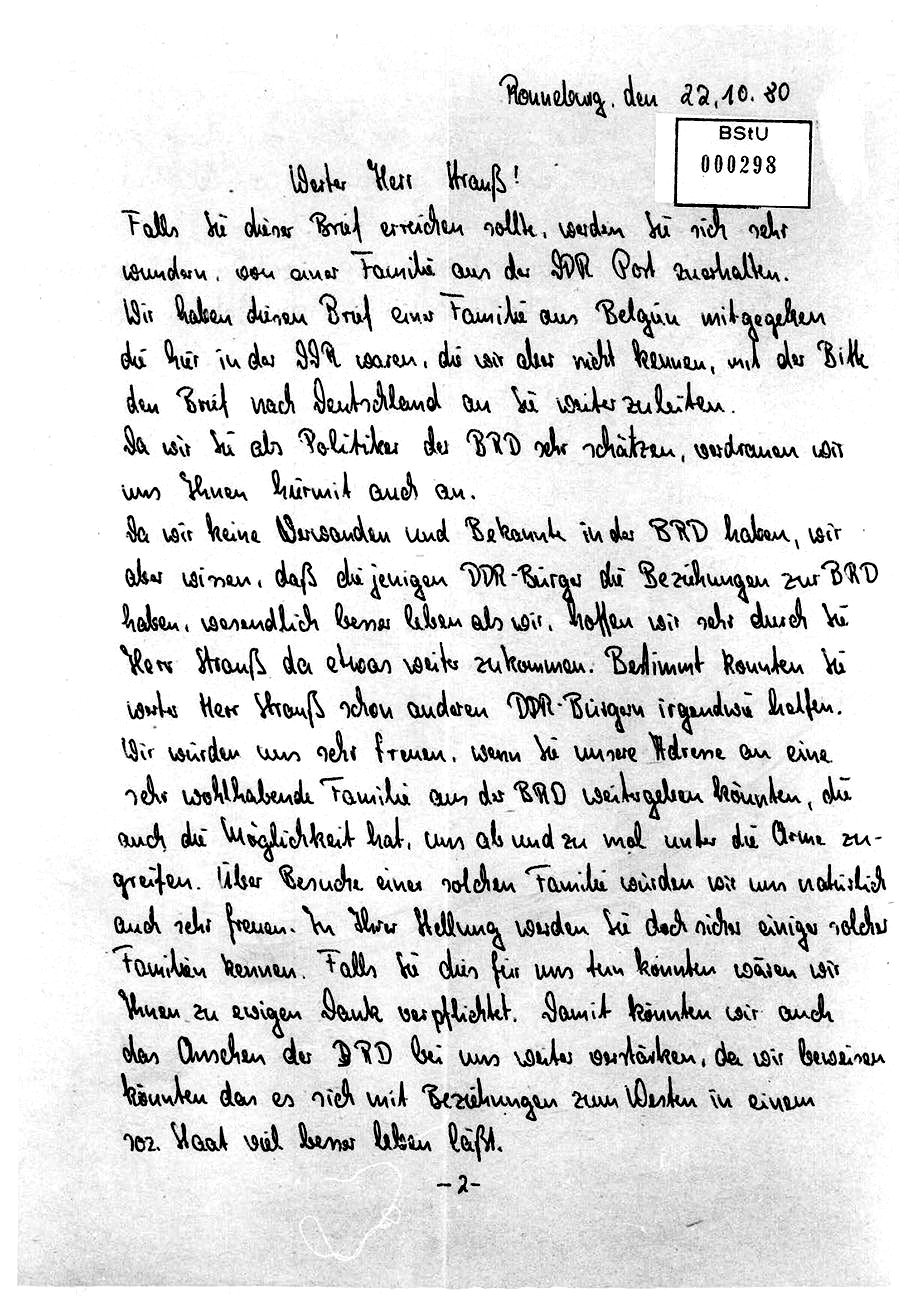 Ronneburg, den 22.10.80
BStU
000298
Werter Herr Strauß!
Falls Sie dieser Brief erreichen sollte, werden Sie sich sehr
wundern, von einer Familie aus der DDR Post zuerhalten.
Wir haben diesen Brief einer Familie aus Belgien mitgegeben
die hier in der DDR waren, die wir aber nicht kennen, mit der Bitte
den Brief nach Deutschland an Sie weiterzuleiten.
Da wir Sie als Politiker der BRD sehr schätzen, verdrauen wir
uns Ihnen hiermit auch an.
Da wir keine Verwanden und Bekannte in der BRD haben, wir
aber wissen, daß diejenigen DDR-Bürger die Beziehungen zur BRD
haben, wesendlich besser leben als wir, hoffen wir sehr durch Sie
Herr Strauß da etwas weiter zukommen. Bestimmt konnten Sie
werter Herr Strauß schon anderen DDR-Bürgern irgendwie helfen.
Wir würden uns sehr freuen, wenn Sie unsere Adresse an eine
sehr wohlhabende Familie aus der BRD weitergeben könnten, die
auch die Möglichkeit hat, uns ab und zu mal unter die Arme zu-
greifen. Über Besuche einer solchen Familie würden wir uns natürlich
auch sehr freuen. In Ihrer Stellung werden Sie doch sicher einige solcher
Familien kennen. Falls Sie dies für uns tun könnten wären wir
Ihnen zu ewigen Dank verpflichtet. Damit könnten wir auch
das Ansehen der BRD bei uns weiter verstärken, da wir beweisen
könnten das es sich mit Beziehungen zum Westen in einem
soz. Staat viel besser leben läßt.
-2-